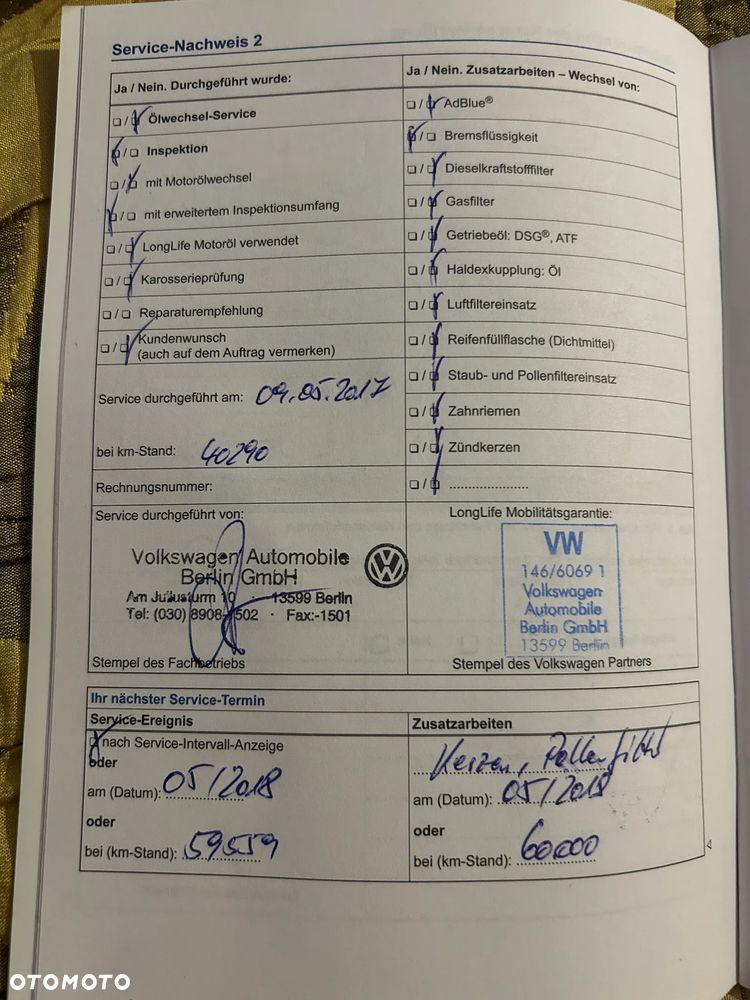 Service-Nachweis 2
Ja / Nein. Durchgeführt wurde:
/ Ölwechsel-Service
/ Inspektion
/ mit Motorölwechsel
/ mit erweitertem Inspektionsumfang
/ LongLife Motoröl verwendet
/ Karosserieprüfung
/ Reparaturempfehlung
/ Kundenwunsch
(auch auf dem Auftrag vermerken)
Service durchgeführt am: 09.05.2017
bei km-Stand: 40290
Rechnungsnummer:
Ja / Nein. Zusatzarbeiten – Wechsel von:
/ AdBlue®
/ Bremsflüssigkeit
/ Dieselkraftstofffilter
/ Gasfilter
/ Getriebeöl: DSG®, ATF
/ Haldexkupplung: Öl
/ Luftfiltereinsatz
/ Reifenfüllflasche (Dichtmittel)
/ Staub- und Pollenfiltereinsatz
/ Zahnriemen
/ Zündkerzen
/ .....................
Service durchgeführt von:
Volkswagen Automobile
Berlin GmbH
Am Juliusturm 10 · 13599 Berlin
Tel: (030) 8908-1502 · Fax:-1501
Stempel des Fachbetriebs
LongLife Mobilitätsgarantie:
VW
146/6069 1
Volkswagen
Automobile
Berlin GmbH
13599 Berlin
Stempel des Volkswagen Partners
Ihr nächster Service-Termin
Service-Ereignis
nach Service-Intervall-Anzeige
oder
am (Datum): 05/2018
oder
bei (km-Stand): 59559
Zusatzarbeiten
Kerzen, Pollenfilter
am (Datum): 05/2018
oder
bei (km-Stand): 60.000
OTOMOTO